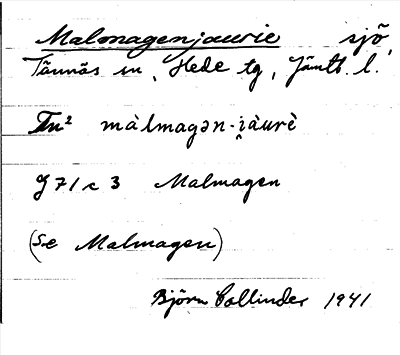 Malmagenjaurie sjö,
Tännäs sn, Hede tg, Jämtl. l.
Tn² màlmagən-i̯àurè
J 71 c 3 Malmagen
(Se Malmagen)
Björn Collinder 1941